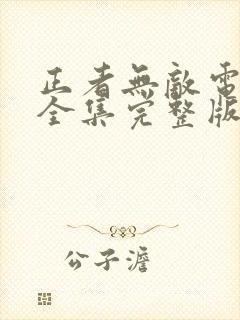 正者無敵電
全集完整版
公子澹